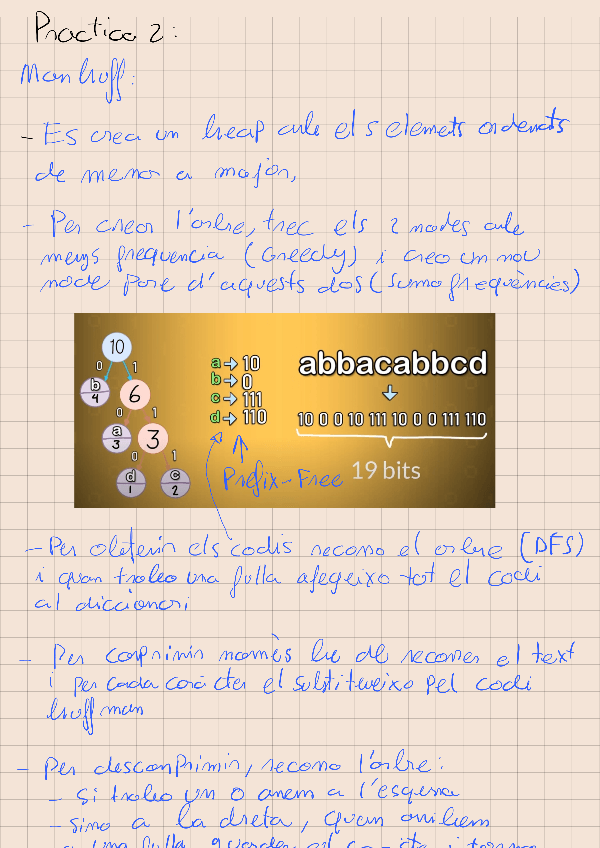 Practica 2:
Manhuff:
- Es crea un heap amb els elemets ordenats
de menor a major,
- Per crear l'arbre, trec els 2 nodes amb
menys frequencia (Greedy) i creo un nou
node pare d'aquests dos (sumo freqüències)
10
0 1
b 4 6
0 1
a 3 3
0 1
d 1 c 2
a → 10
b → 0
c → 111
d → 110
Prefix-Free
abbacabbcd
10 0 0 10 111 10 0 0 111 110
19 bits
- Per obtenir els codis recorro el arbre (DFS)
i quan trobo una fulla afegeixo tot el codi
al diccionari
- Per comprimir només he de recorrer el text
i per cada caràcter el substitueixo pel codi
huffman
- Per descomprimir, recorro l'arbre:
- Si trobo un 0 anem a l'esquerra
- sino a la dreta, quan arribem
a una fulla